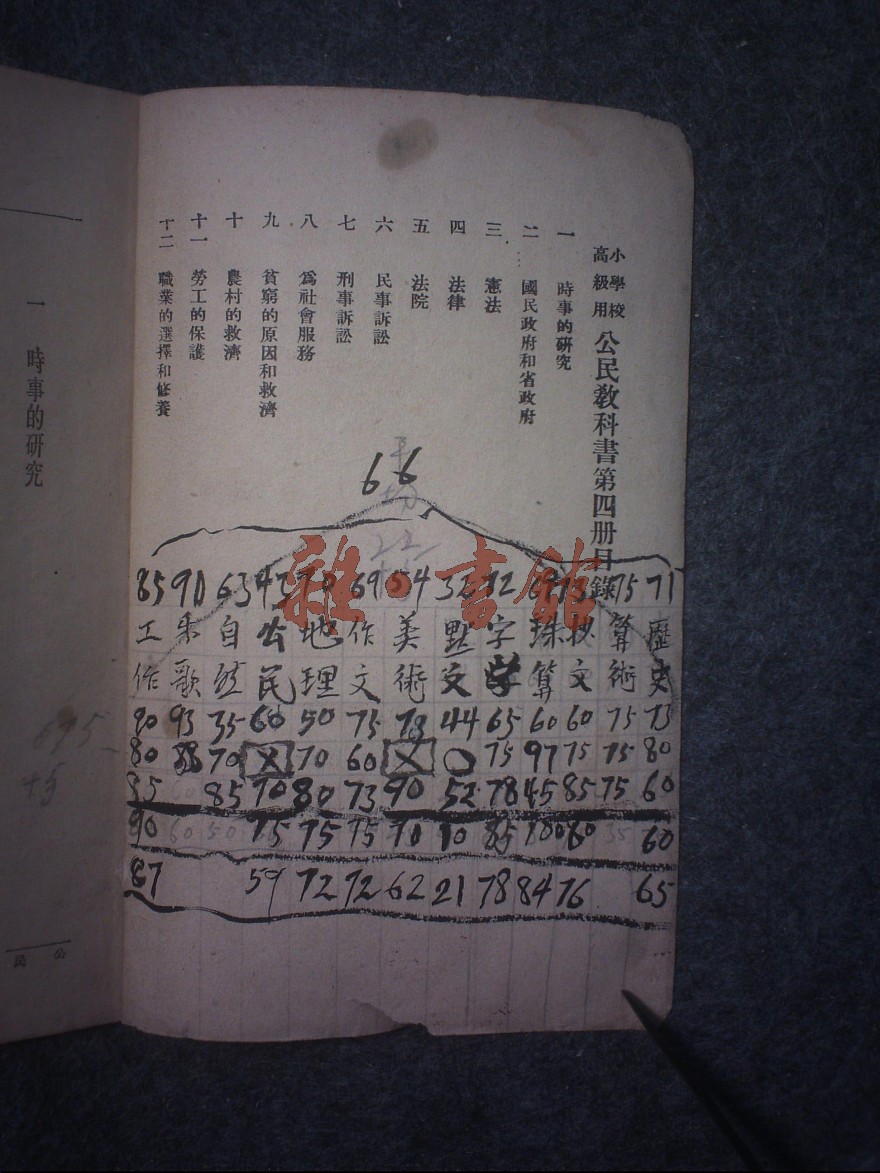 小學校高級用 公民教科書第四册目錄
一 時事的研究
二 國民政府和省政府
三 憲法
四 法律
五 法院
六 民事訴訟
七 刑事訴訟
八 爲社會服務
九 貧窮的原因和救濟
十 農村的救濟
十一 勞工的保護
十二 職業的選擇和修養
66
85 90 63 43 70 69 54 32 72 75 71
工作 乐歌 自然 公民 地理 作文 美術 默文 字学 珠算 文 算術 歷史
90 93 35 60 50 75 44 65 60 60 75 73
80 70 X 70 60 X 〇 75 97 75 75 80
85 85 70 80 73 90 52 78 45 85 75 60
90 60 50 75 75 75 70 10 85 100 60 35 60
87 59 72 72 62 21 78 84 76 65
雜·書館
一 時事的研究
公民
695
+5